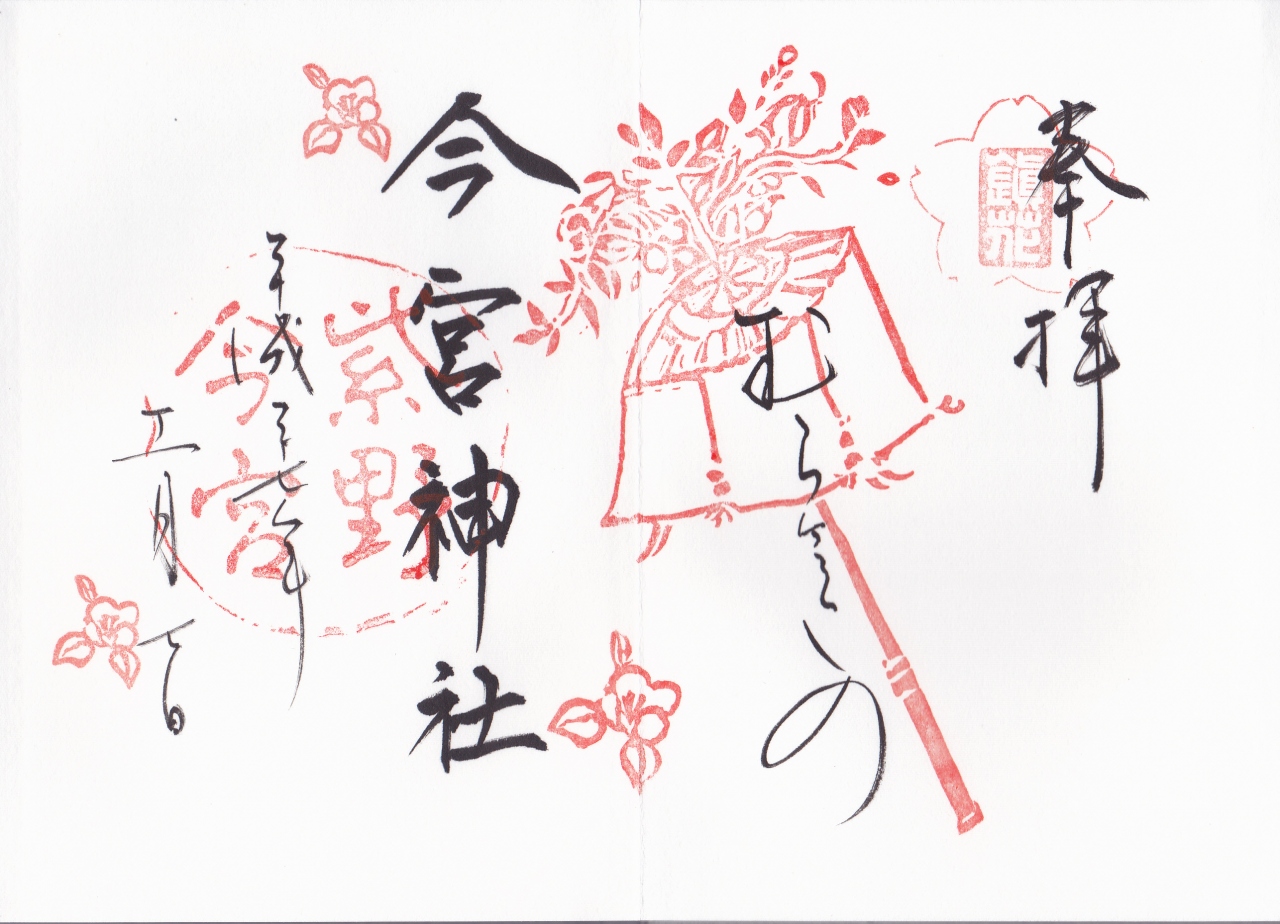 奉拝
鎮花
むらさきの
今宮神社
紫野
今宮
平成二十七年
五月